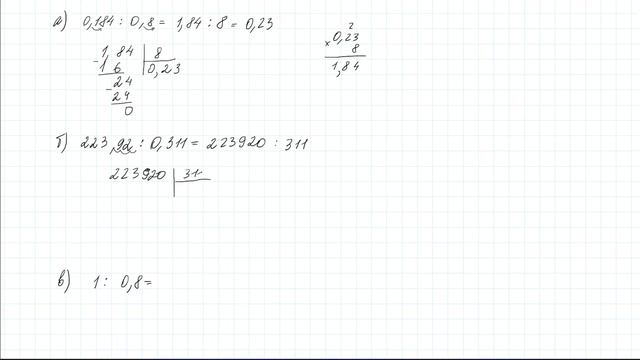 а) 0,184 : 0,8 = 1,84 : 8 = 0,23
1,84 | 8
- 1 6 | 0,23
- 24
24
0
2
× 0,23
8
1,84
б) 223,92 : 0,311 = 223920 : 311
223920 | 311
в) 1 : 0,8 =